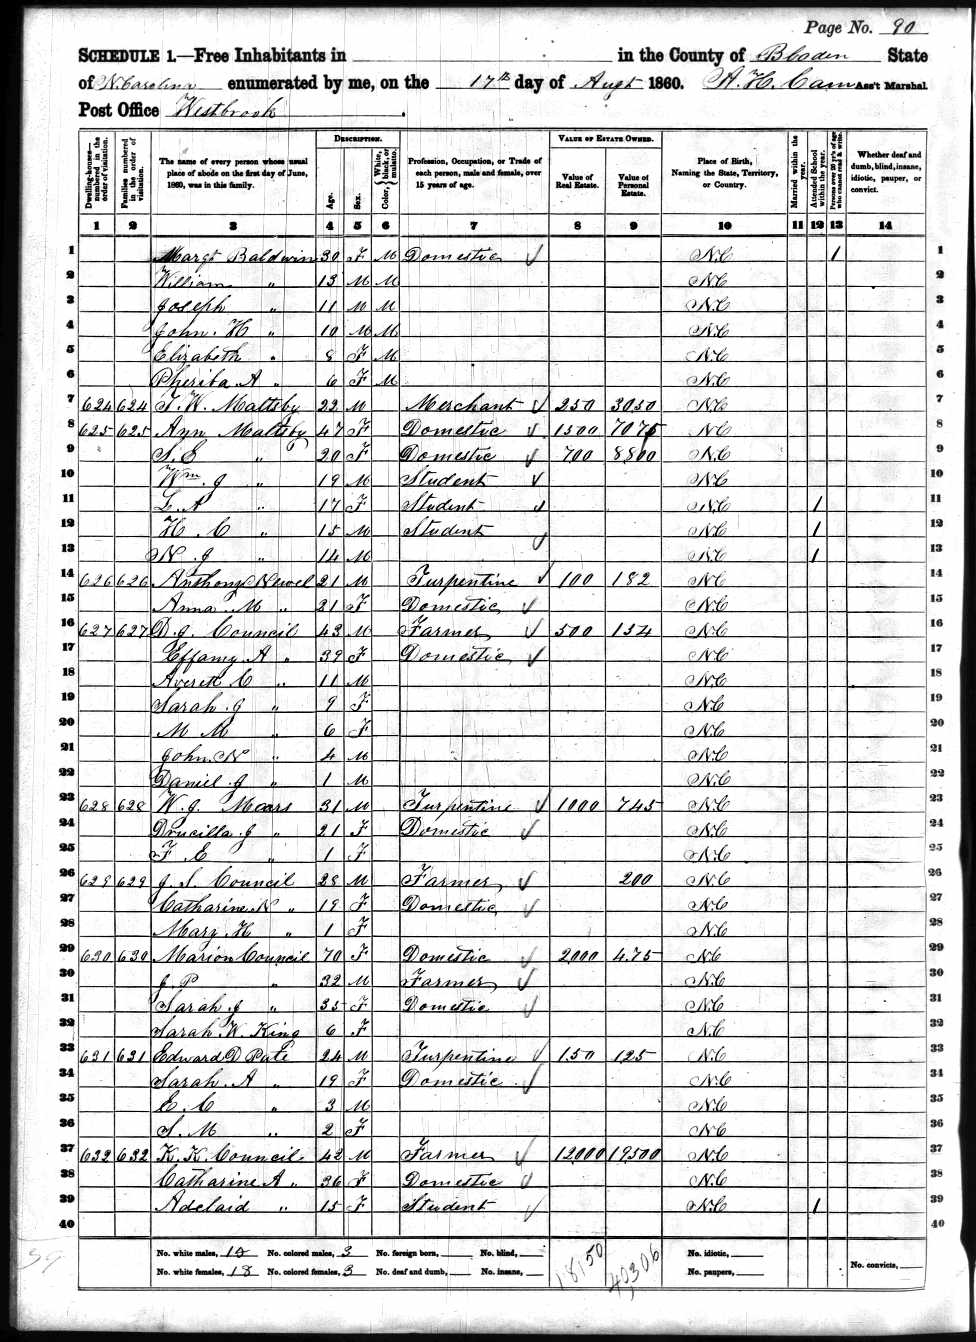 Page No. 90
SCHEDULE 1.—Free Inhabitants in in the County of Bladen State
of N. Carolina enumerated by me, on the 17th day of Augt 1860. A. H. Cam Ass't Marshal
Post Office Westbrook .
Dwelling-houses—numbered in the order of visitation. Families numbered in the order of visitation. The name of every person whose usual place of abode on the first day of June, 1860, was in this family. DESCRIPTION. Age. Sex. Color, { White, black, or mulatto. Profession, Occupation, or Trade of each person, male and female, over 15 years of age. VALUE OF ESTATE OWNED. Value of Real Estate. Value of Personal Estate. Place of Birth, Naming the State, Territory, or Country. Married within the year. Attended School within the year. Persons over 20 y'rs of age who cannot read & write. Whether deaf and dumb, blind, insane, idiotic, pauper, or convict.
1 2 3 4 5 6 7 8 9 10 11 12 13 14
1 Margt Baldwin 30 F M Domestic N.C 1 1
2 William " 13 M M N.C 2
3 Joseph " 11 M M N.C 3
4 John. H " 10 M M N.C 4
5 Elizabeth " 8 F M N.C 5
6 Pheriba A " 6 F M N.C 6
7 624 624 J. W. Maltsby 22 M Merchant 250 3050 N.C 7
8 625 625 Ann Maltsby 47 F Domestic 1500 7075 N.C 8
9 S. E " 20 F Domestic 700 8800 N.C 9
10 Wm. J " 19 M Student N.C 10
11 L. A " 17 F Student N.C 1 11
12 H. C " 15 M Student N.C 1 12
13 N. J " 14 M N.C 1 13
14 626 626 Anthony Newel 21 M Turpentine 100 182 N.C 14
15 Anna M " 21 F Domestic N.C 15
16 627 627 D. J. Council 43 M Farmer 500 134 N.C 16
17 Effamy A " 39 F Domestic N.C 17
18 Averett C " 11 M N.C 18
19 Sarah J " 9 F N.C 19
20 M M " 6 F N.C 20
21 John. N " 4 M N.C 21
22 Daniel J " 1 M N.C 22
23 628 628 W. J. Mears 31 M Turpentine 1000 745 N.C 23
24 Drucilla J " 21 F Domestic N.C 24
25 F. E " 1 F N.C 25
26 629 629 J. S. Council 28 M Farmer 200 N.C 26
27 Catharine N " 19 F Domestic N.C 27
28 Mary. H " 1 F N.C 28
29 630 630 Marion Council 70 F Domestic 2000 475 N.C 29
30 J. P " 32 M Farmer N.C 30
31 Sarah J " 35 F Domestic N.C 31
32 Sarah W. King 6 F N.C 32
33 631 631 Edward D Pate 24 M Turpentine 150 125 N.C 33
34 Sarah. A " 19 F Domestic N.C 34
35 E. C " 3 M N.C 35
36 S. M " 2 F N.C 36
37 632 632 K. K. Council 42 M Farmer 12000 19500 N.C 37
38 Catharine A " 36 F Domestic N.C 38
39 Adelaid " 15 F Student N.C 1 39
40 40
No. white males, 14 No. colored males, 3 No. foreign born, No. blind, 18150 40306 No. idiotic,
No. white females, 18 No. colored females, 3 No. deaf and dumb, No. insane, No. paupers, No. convicts,